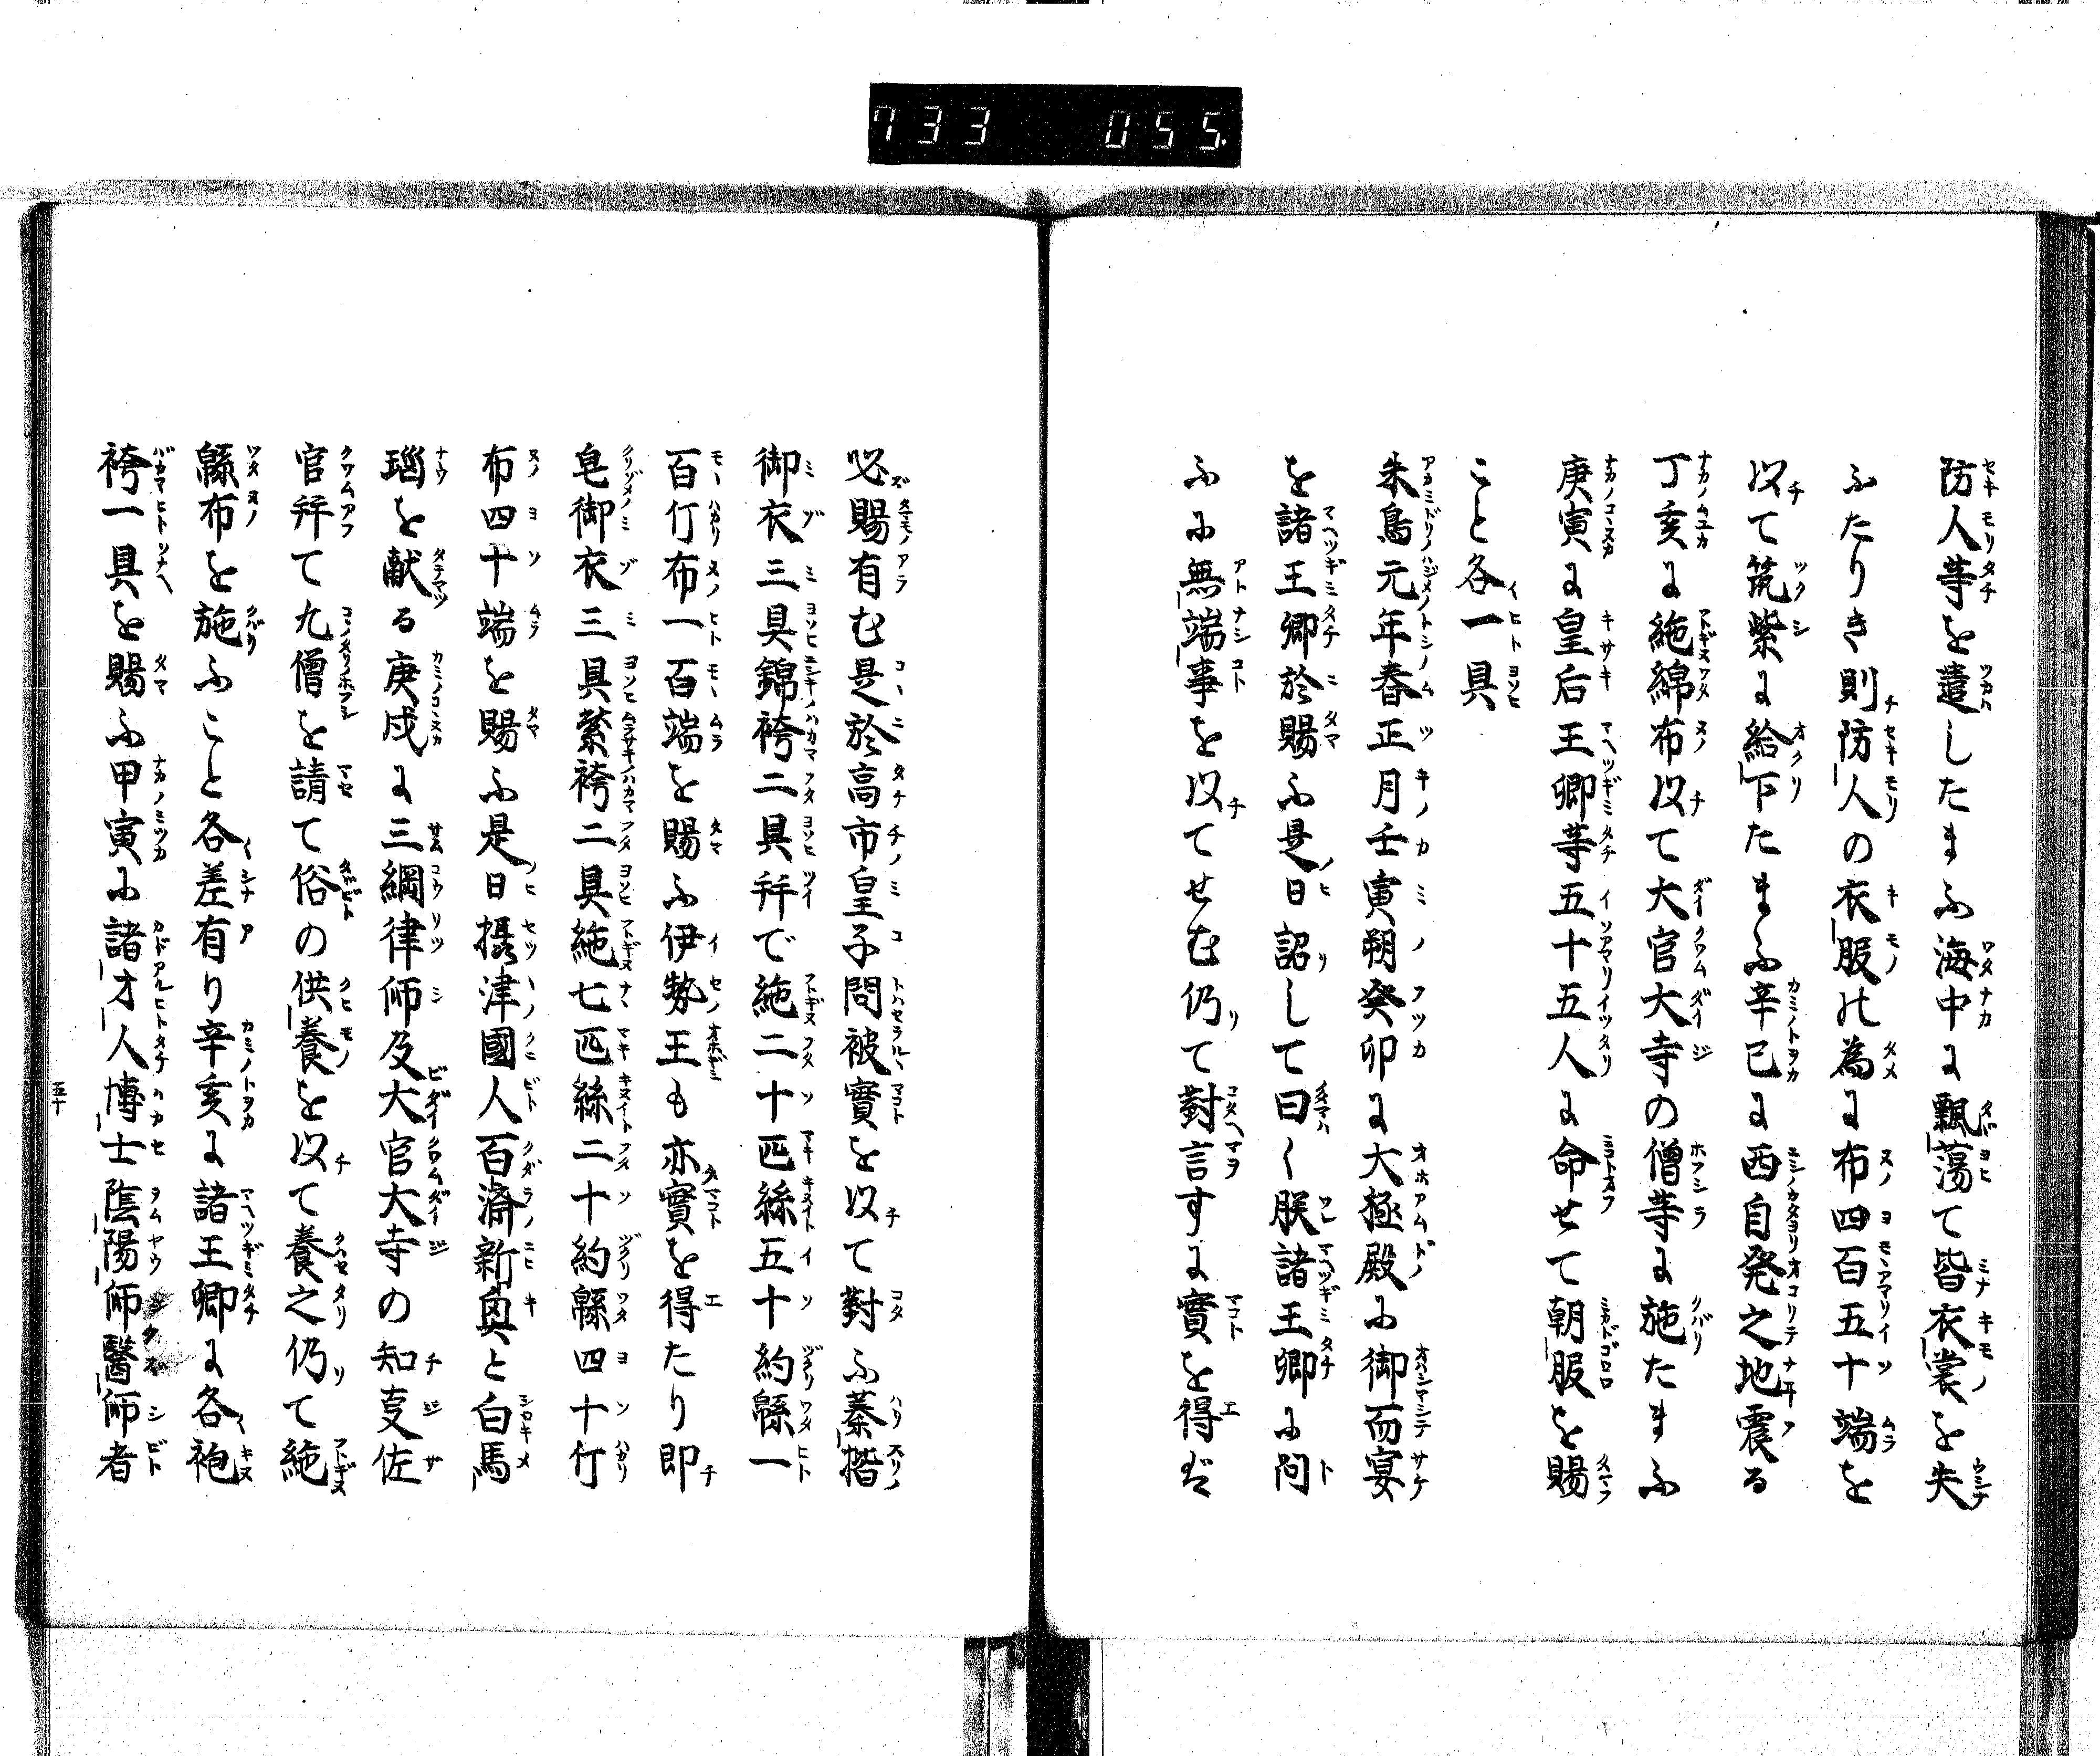 733 055.
防人等を遣したまふ海中に飄蕩て皆衣裳を失
ふたりき則防人の衣服の為に布四百五十端を
以て筑紫に給下たまふ辛巳に西自発之地震る
丁亥に絁綿布以て大官大寺の僧等に施たまふ
庚寅に皇后王卿等五十五人に命せて朝服を賜
こと各一具
朱鳥元年春正月壬寅朔癸卯に大極殿に御而宴
を諸王卿於賜ふ是日詔して曰く朕諸王卿に問
ふに無端事を以てせむ仍て對言すに實を得ば
必賜有む是於高市皇子問被實を以て對ふ蓁揩
御衣三具錦袴二具幷で絁二十匹絲五十約緜一
百斤布一百端を賜ふ伊勢王も亦實を得たり即
皂御衣三具紫袴二具絁七匹絲二十約緜四十斤
布四十端を賜ふ是日攝津國人百濟新興と白馬
瑙を献る庚戌に三綱律師及大官大寺の知叓佐
官幷て九僧を請て俗の供養を以て養之仍て絁
緜布を施ふこと各差有り辛亥に諸王卿に各袍
袴一具を賜ふ甲寅に諸才人博士陰陽師醫師者
五十